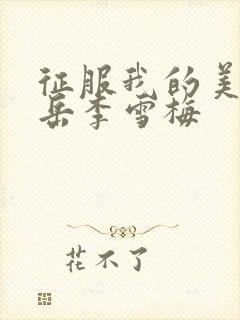 征服我的美
岳李雪梅
花不了